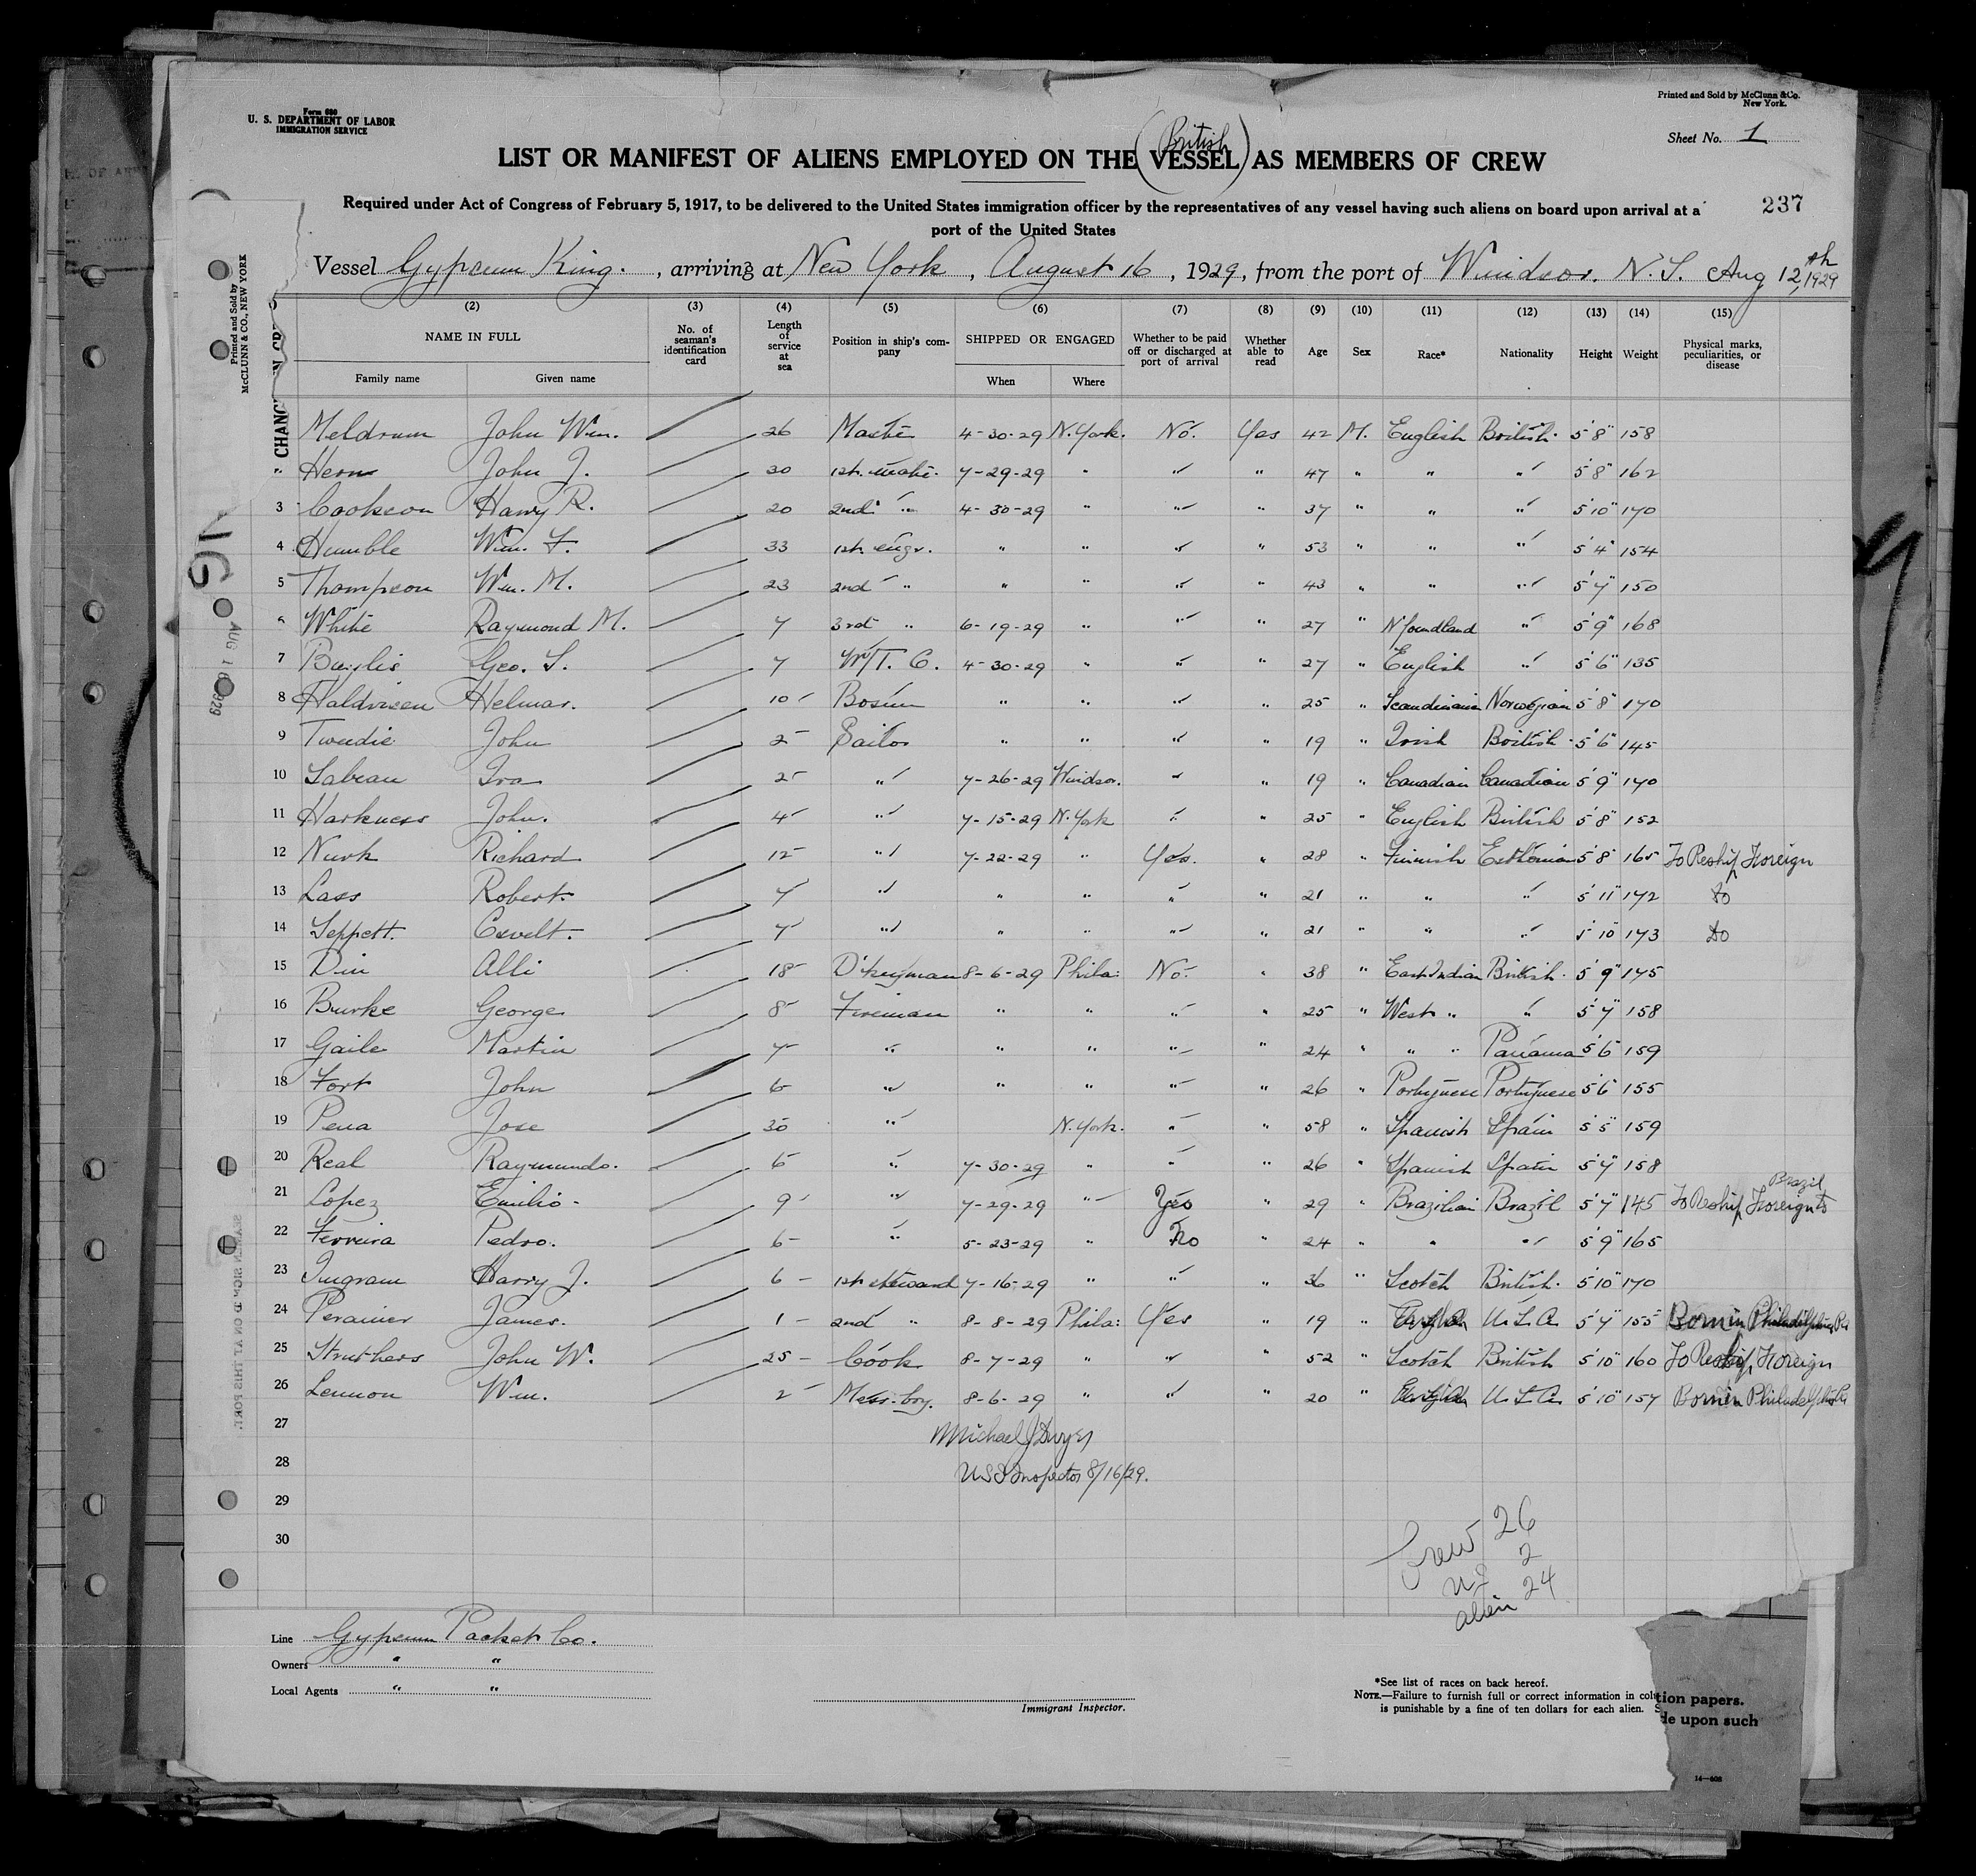 Form 680
U. S. DEPARTMENT OF LABOR
IMMIGRATION SERVICE
Printed and Sold by McClunn & Co.
New York.
Sheet No. 1
(British)
LIST OR MANIFEST OF ALIENS EMPLOYED ON THE VESSEL AS MEMBERS OF CREW
Required under Act of Congress of February 5, 1917, to be delivered to the United States immigration officer by the representatives of any vessel having such aliens on board upon arrival at a
port of the United States
237
Vessel Gypsum King. , arriving at New York , August 16 , 1929, from the port of Windsor. N. S. Aug 12,th 1929
Printed and Sold by
McCLUNN & CO., NEW YORK
(2) (3) (4) (5) (6) (7) (8) (9) (10) (11) (12) (13) (14) (15)
NAME IN FULL No. of seaman's identification card Length of service at sea Position in ship's company SHIPPED OR ENGAGED Whether to be paid off or discharged at port of arrival Whether able to read Age Sex Race* Nationality Height Weight Physical marks, peculiarities, or disease
Family name Given name When Where
Meldrum John Wm. 26 Master 4-30-29 N. York. No. Yes 42 M. English British. 5'8" 158
Hern John J. 30 1st. mate. 7-29-29 " " " 47 " " " 5'8" 162
3 Cookson Harry R. 20 2nd " 4-30-29 " " " 37 " " " 5'10" 170
4 Humble Wm. F. 33 1st. engr. " " " " 53 " " " 5'4" 154
5 Thompson Wm. M. 23 2nd " " " " " 43 " " " 5'7" 150
6 White Raymond M. 7 3rd " 6-19-29 " " " 27 " N'foundland " 5'9" 168
7 Baylis Geo. S. 7 W/T. O. 4-30-29 " " " 27 " English " 5'6" 135
8 Haldvisen Helmar. 10 Bosun " " " " 25 " Scandinavian Norwegian 5'8" 170
9 Tweedie John 2 Sailor " " " " 19 " Irish British 5'6" 145
10 Sabean Ira 2 " 7-26-29 Windsor. " " 19 " Canadian Canadian 5'9" 170
11 Harkness John. 4 " 7-15-29 N. York " " 25 " English British 5'8" 152
12 Nurk Richard 12 " 7-22-29 " Yes. " 28 " Finnish Esthonian 5'8" 165 To Reship Foreign
13 Lass Robert. 7 " " " " " 21 " " " 5'11" 172 Do
14 Seppett. Osvelt. 7 " " " " " 21 " " " 5'10" 173 Do
15 Din Alli 18 D'keyman 8-6-29 Phila: No. " 38 " East Indian British. 5'9" 145
16 Burke George 8 Fireman " " " " 25 " West " " 5'7" 158
17 Gaile Martin 7 " " " " " 24 " " " Panama 5'6" 159
18 Fort John 6 " " " " " 26 " Portuguese Portuguese 5'6" 155
19 Pena Jose 30 " N. York. " " 58 " Spanish Spain 5'5" 159
20 Real Raymundo. 6 " 7-30-29 " " " 26 " Spanish Spain 5'7" 158
21 Lopez Emilio 9 " 7-29-29 " Yes " 29 " Brazilian Brazil 5'7" 145 To Reship Foreign to Brazil
22 Ferreira Pedro. 6 " 5-23-29 " No " 24 " " " 5'9" 165
23 Ingram Harry J. 6 1st steward 7-16-29 " " " 36 " Scotch British. 5'10" 170
24 Perainer James. 1 2nd " 8-8-29 Phila: Yes " 19 " U.S.A. 5'7" 155 Born in Philadelphia Pa
25 Struthers John W. 25 Cook 8-7-29 " " " 52 " Scotch British 5'10" 160 To Reship Foreign
26 Lennon Wm. 2 Mess. boy. 8-6-29 " " " 20 " U.S.A. 5'10" 157 Born in Philadelphia Pa
27
Michael J Dwyer
28
US Inspector 8/16/29.
29
30
Crew 26
US 2
alien 24
Line Gypsum Packet Co.
Owners " "
Local Agents " "
Immigrant Inspector.
*See list of races on back hereof.
NOTE.—Failure to furnish full or correct information in colu
is punishable by a fine of ten dollars for each alien. S
tion papers.
de upon such